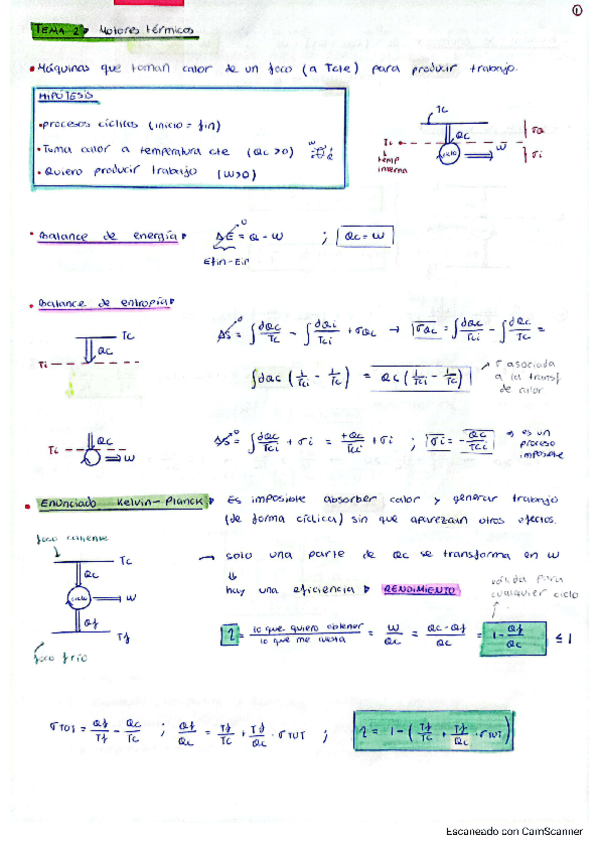 1
TEMA 2 Motores térmicos
• Máquinas que toman calor de un foco (a Tcte) para producir trabajo.
HIPÓTESIS
• procesos cíclicos (inicio = fin)
• Toma calor a temperatura cte (Qc > 0) W Q
• Quiero producir trabajo (W>0)
Tc
Qc
Ti
ciclo
W
σQ
σi
temp
interna
• Balance de energía ΔE = Q - W ; Qc = W
0
Efin - Ein
• Balance de entropía
Tc
Ti
Qc
ΔS = ∫ dQc/Tc - ∫ dQi/Tci + σQc → σQc = ∫ dQc/Tci - ∫ dQc/Tc =
0
∫ dQc (1/Tci - 1/Tc) = Qc (1/Tci - 1/Tc)
σ asociada
a la transf
de calor
Ti
Qc
W
ΔS = ∫ dQc/Tci + σi = +Qc/Tci + σi ; σi = - Qc/Tci
0
es un
proceso
• Enunciado Kelvin-Planck Es imposible absorber calor y generar trabajo
(de forma cíclica) sin que aparezcan otros efectos.
foco caliente
Tc
Qc
ciclo
W
Qf
Tf
foco frío
→ solo una parte de Qc se transforma en W
⇓
hay una eficiencia RENDIMIENTO
válida para
cualquier ciclo
η = lo que quiero obtener/lo que me cuesta = W/Qc = Qc-Qf/Qc = 1 - Qf/Qc ≤ 1
σTOT = Qf/Tf - Qc/Tc ; Qf/Qc = Tf/Tc + Tf/Qc · σTOT ; η = 1 - (Tf/Tc + Tf/Qc · σTOT)
Escaneado con CamScanner